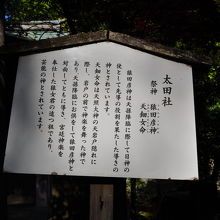 太田社
祭神　猿田彦神
天鈿女命
猿田彦神は天孫降臨に際して日神の
使として先導の役割を果たした導きの
神とされています。
天鈿女命は天照大神の天岩戸隠れに
際し、岩戸の前で神楽を舞った神で
あり、天孫降臨にお供をして猿田彦神と
対面してともに導き、宮廷神楽を
奉仕した猿女君の遠つ祖であり、
芸能の神とされています。